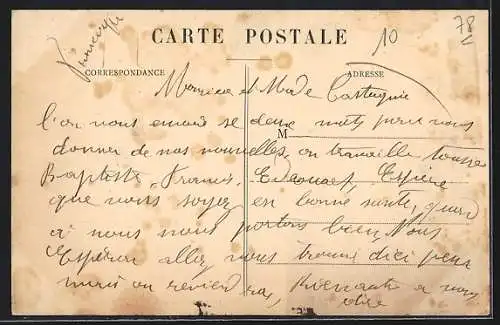 CARTE POSTALE
10
78
CORRESPONDANCE
ADRESSE
Monsieur et Mde Castagnié
l'on vous envoie se deux mots pour vous
M
donner de nos nouvelles, on travaille tousse
Baptiste, Francis, Edouard,
que vous soyez en bonne santé, quand
à nous nous portons bien, Nous
allez vous dici peux
mais on reviendras, a vous
dire